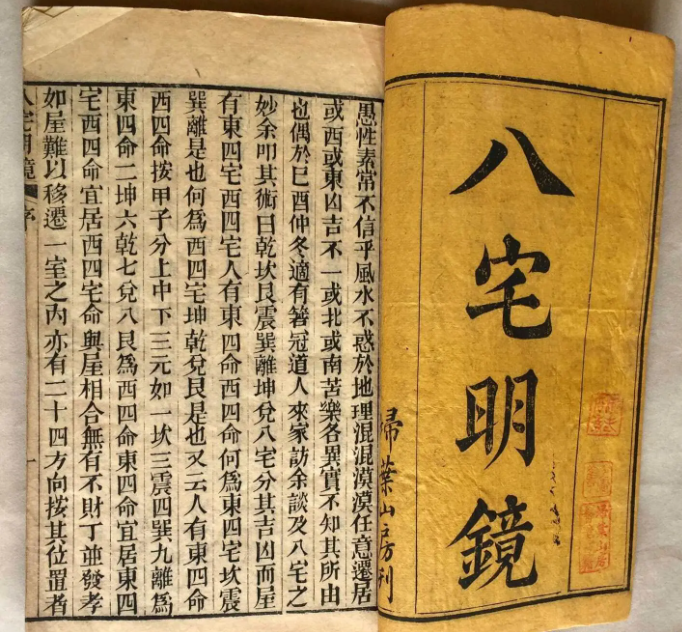 八宅明鏡
掃葉山房刊
愚性素常不信乎風水不惑於地理混混漠漠任意遷居
或西或東凶吉不一或北或南苦樂各異實不知其所由
也偶於己酉仲冬適有箬冠道人來家訪余談及八宅之
妙余叩其術曰乾坎艮震巽離坤兌八宅分其吉凶而屋
有東四宅西四宅人有東四命西四命何爲東四宅坎震
巽離是也何爲西四宅坤乾兌艮是也又云人有東四命
西四命按甲子分上中下三元如一坎三震四巽九離爲
東四命二坤六乾七兌八艮爲西四命東四命宜居東四
宅西四命宜居西四宅命與屋相合無有不財丁並發孝
如屋難以移遷一室之內亦有二十四方向按其位置者
八宅明鏡 序 一